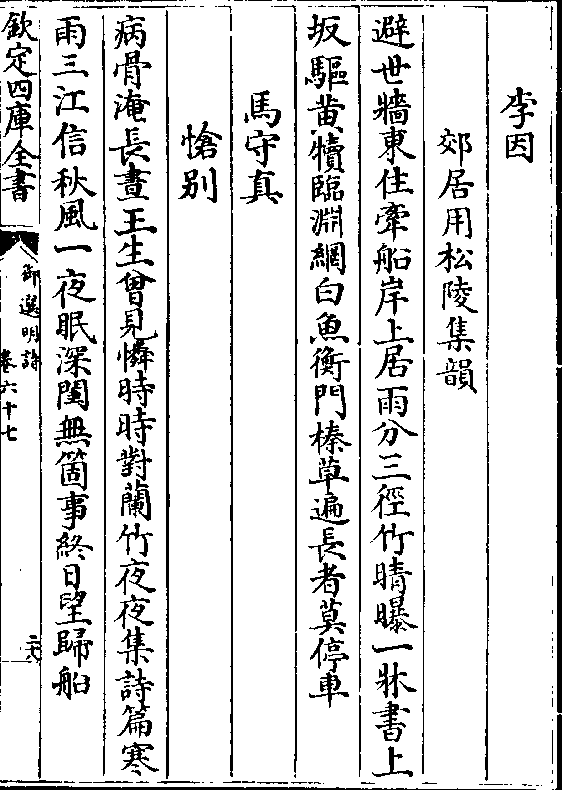 李因
郊居用松陵集韻
避世牆東住牽船岸上居雨分三徑竹晴曝一牀書上
坂驅黄犢臨淵網白魚衡門榛草遍長者莫停車
馬守真
愴别
病骨淹長晝王生曾見憐時時對蘭竹夜夜集詩篇寒
雨三江信秋風一夜眠深閨無箇事終日望歸船
欽定四庫全書
御選明詩
卷六十七
二六